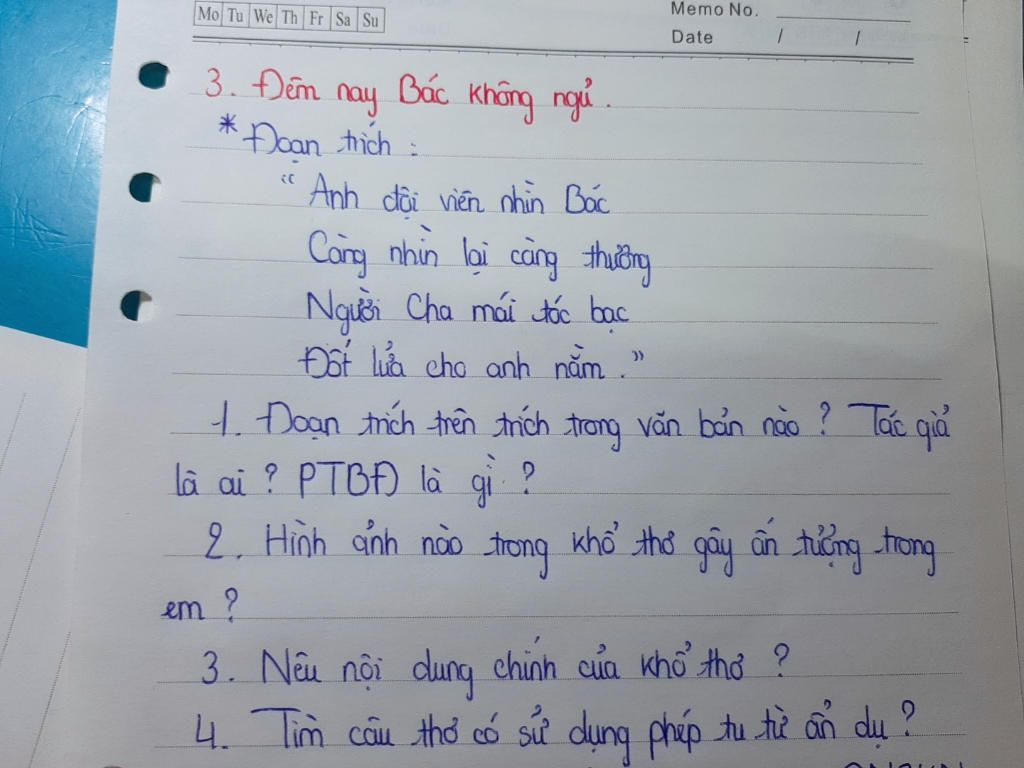 Mo Tu We Th Fr Sa Su
Memo No.
Date / /
3. Đêm nay Bác không ngủ.
* Đoạn trích :
“ Anh đội viên nhìn Bác
Càng nhìn lại càng thương
Người Cha mái tóc bạc
Đốt lửa cho anh nằm . ”
1. Đoạn trích trên trích trong văn bản nào ? Tác giả
là ai ? PTBĐ là gì ?
2. Hình ảnh nào trong khổ thơ gây ấn tượng trong
em ?
3. Nêu nội dung chính của khổ thơ ?
4. Tìm câu thơ có sử dụng phép tu từ ẩn dụ ?